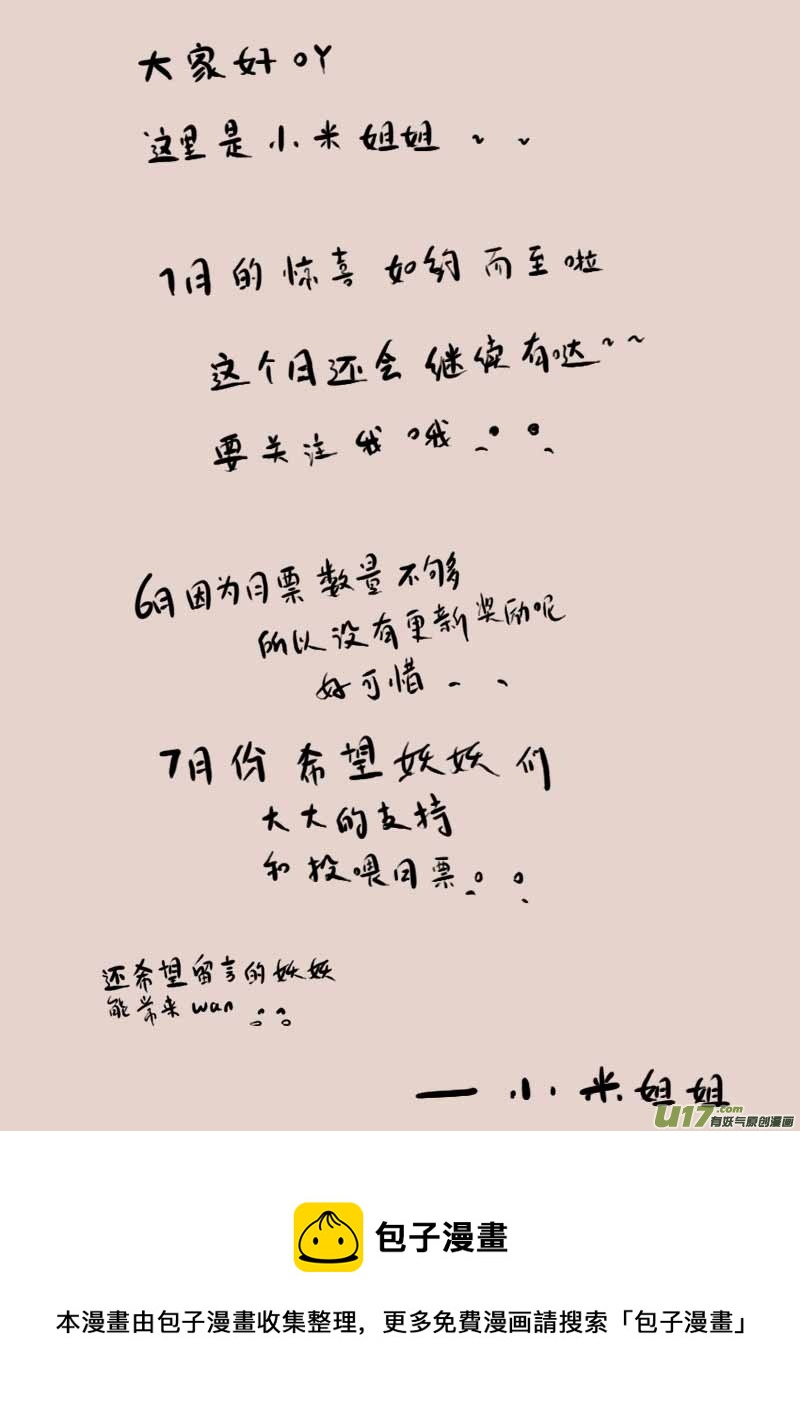 大家好吖
这里是小米姐姐~~
7月的惊喜如约而至啦
这个月还会继续有哒~~
要关注我哦
6月因为月票数量不够
所以没有更新奖励呢
好可惜
7月份希望妖妖们
大大的支持
和投喂月票
还希望留言的妖妖
能常来wan
—小米姐姐
U17.com
有妖气原创漫画
包子漫畫
本漫畫由包子漫畫收集整理，更多免費漫画請搜索「包子漫畫」